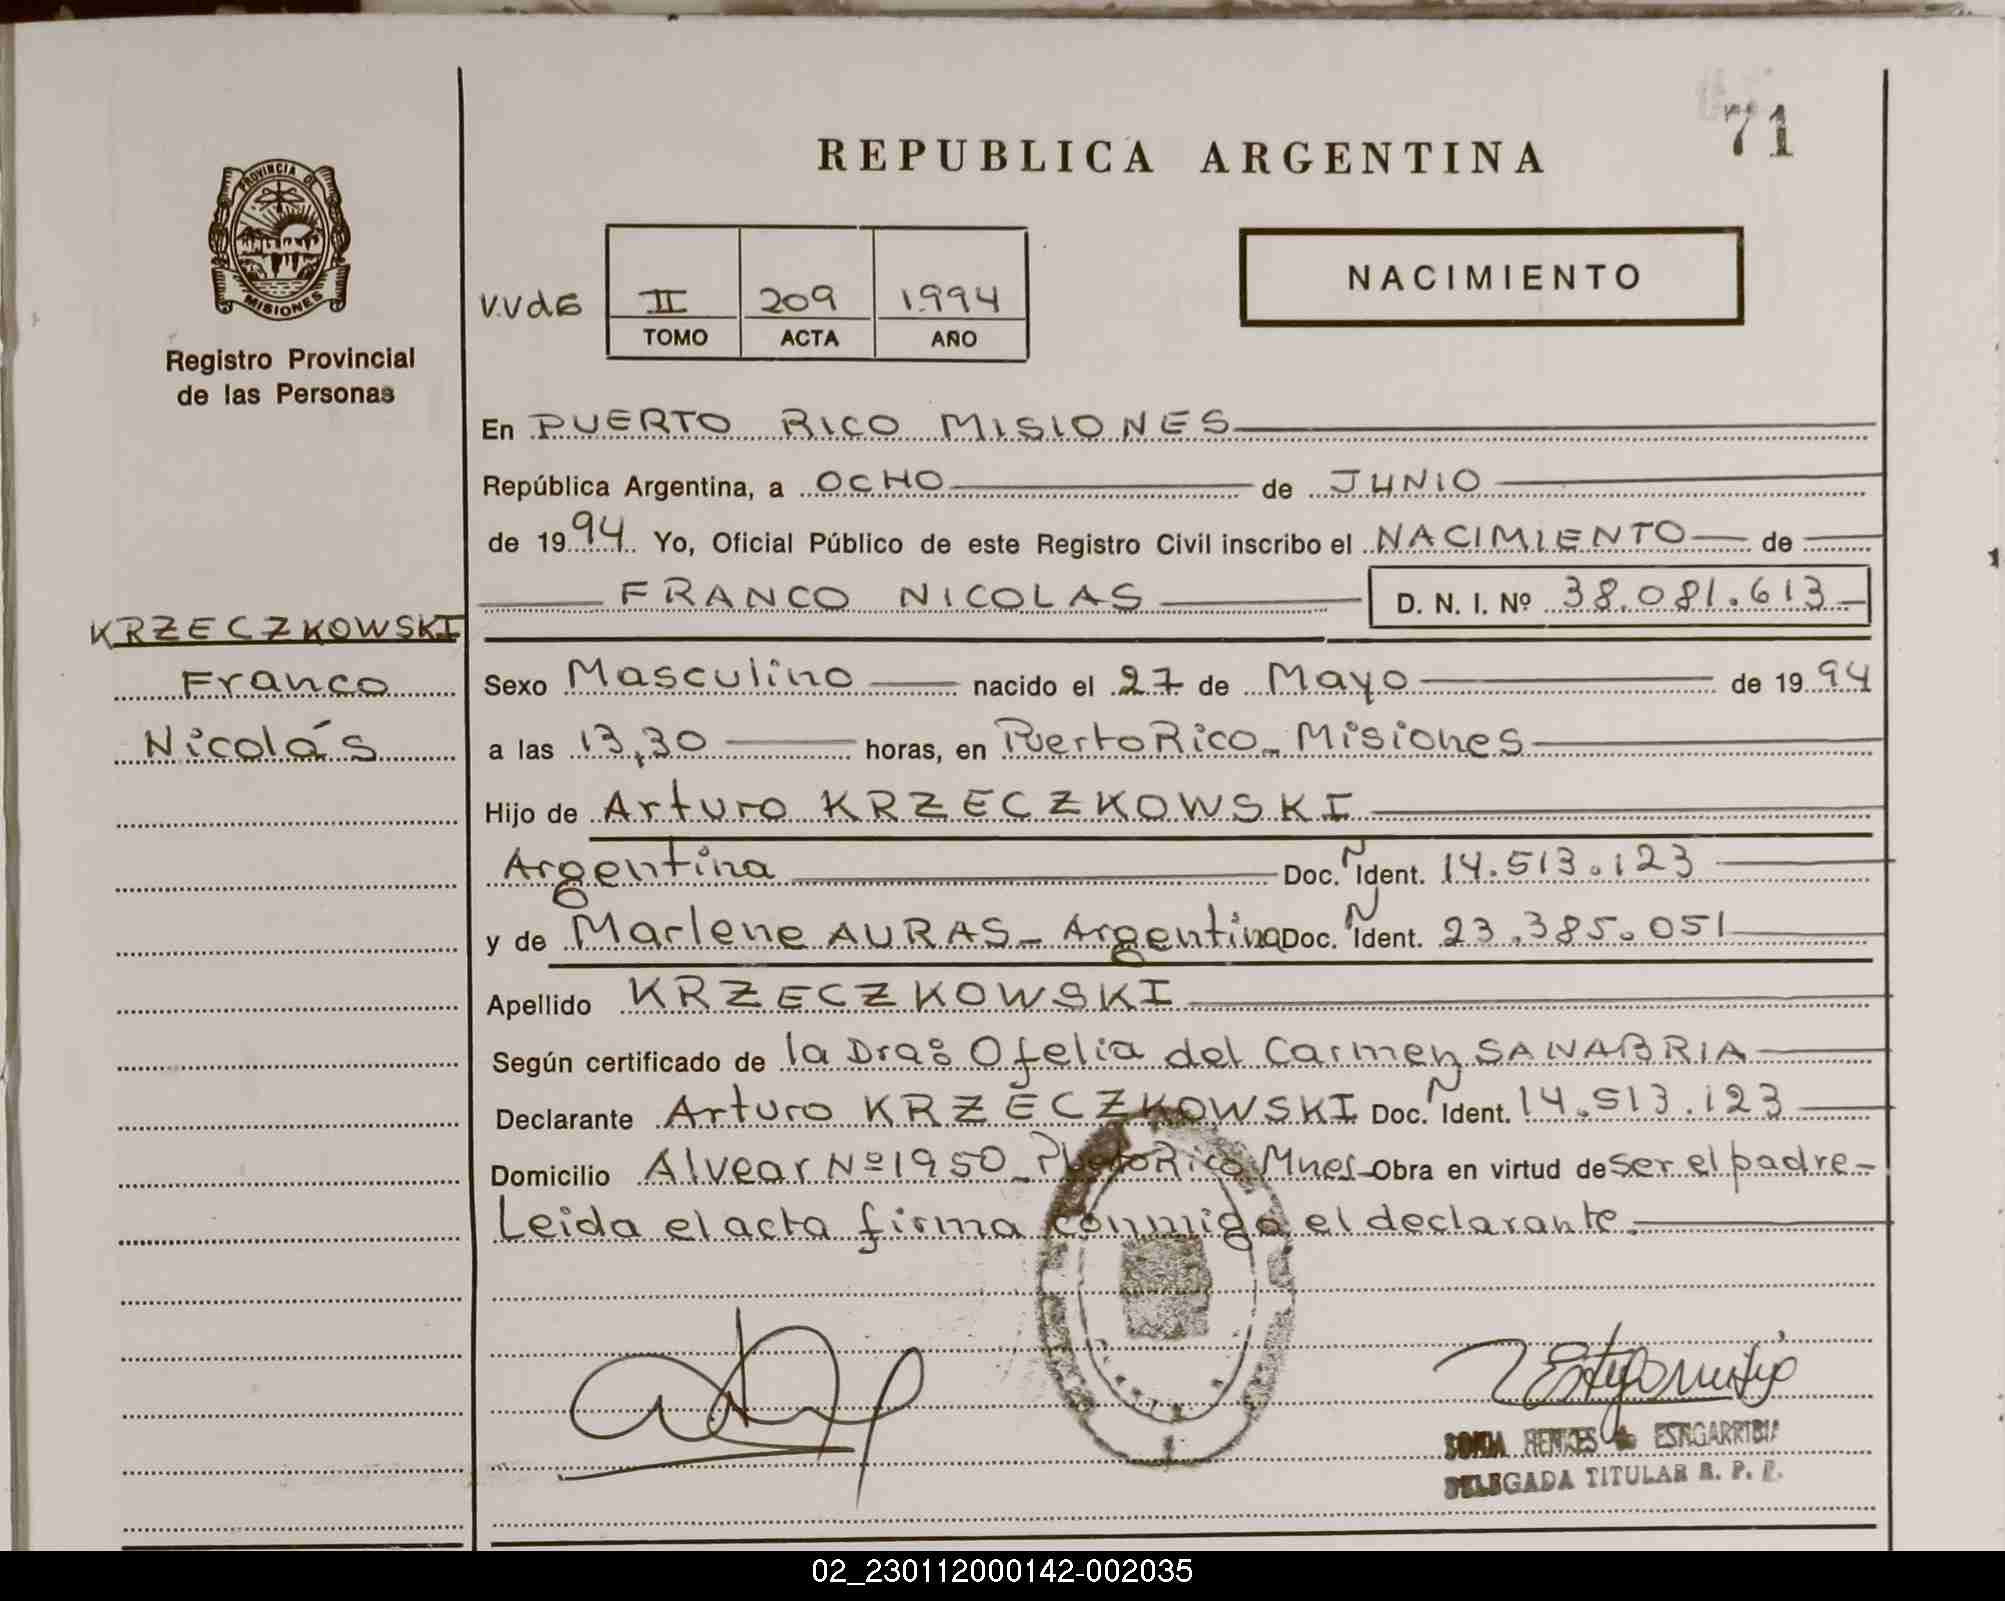 71
REPUBLICA ARGENTINA
PROVINCIA DE
MISIONES
Registro Provincial
de las Personas
V.V.d6 II 209 1994
TOMO ACTA AÑO
NACIMIENTO
En PUERTO RICO MISIONES
República Argentina, a OCHO de JUNIO
de 1994 Yo, Oficial Público de este Registro Civil inscribo el NACIMIENTO de
FRANCO NICOLAS D. N. I. Nº 38.081.613
KRZECZKOWSKI
Franco
Nicolás
Sexo Masculino nacido el 27 de Mayo de 1994
a las 13,30 horas, en Puerto Rico - Misiones
Hijo de Arturo KRZECZKOWSKI
Argentina Doc. N Ident. 14.513.123
y de Marlene AURAS - Argentina Doc. N Ident. 23.385.051
Apellido KRZECZKOWSKI
Según certificado de la Dra: Ofelia del Carmen SANABRIA
Declarante Arturo KRZECZKOWSKI Doc. N Ident. 14.513.123
Domicilio Alvear Nº 1950 - Puerto Rico Mnes - Obra en virtud de ser el padre -
Leida el acta firma conmigo el declarante.
SONIA de ESTIGARRIBIA
DELEGADA TITULAR R. P. P.
02_230112000142-002035